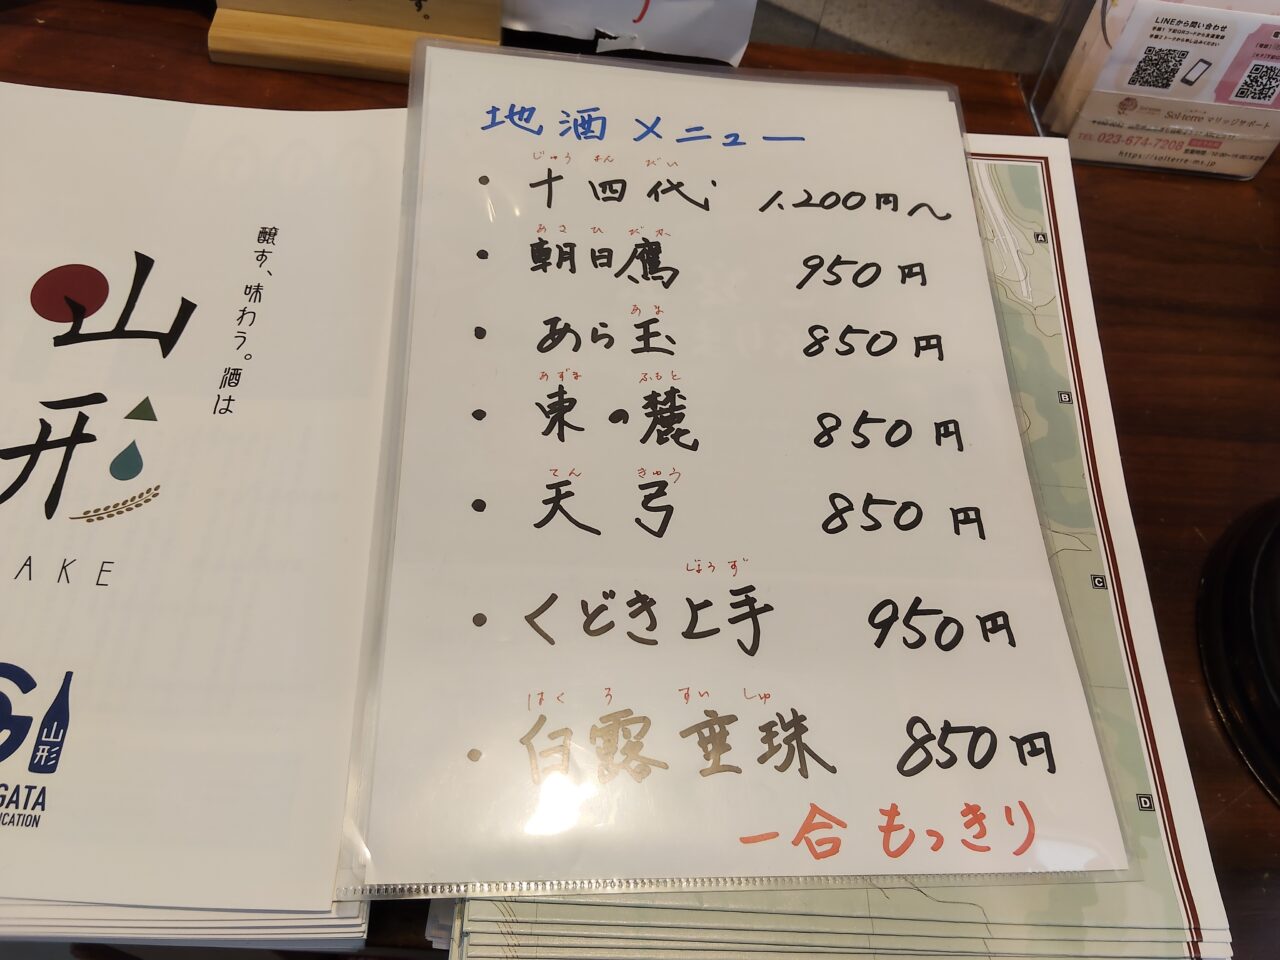 地酒メニュー
じゅう よん だい
・十四代 1,200円〜
あさ ひ だか
・朝日鷹 950円
あま
・あら玉 850円
あずま ふもと
・東の麓 850円
てん きゅう
・天弓 850円
じょうず
・くどき上手 950円
はく ろ すい しゅ
・白露垂珠 850円
一合 もっきり
醸す、味わう。酒は
山形
AKE
山形
GATA
ICATION
LINEから問い合わせ
Sol-terre マリッジサポート
TEL 023-674-7208
https://solterre-ms.jp
す。
A
B
C
D